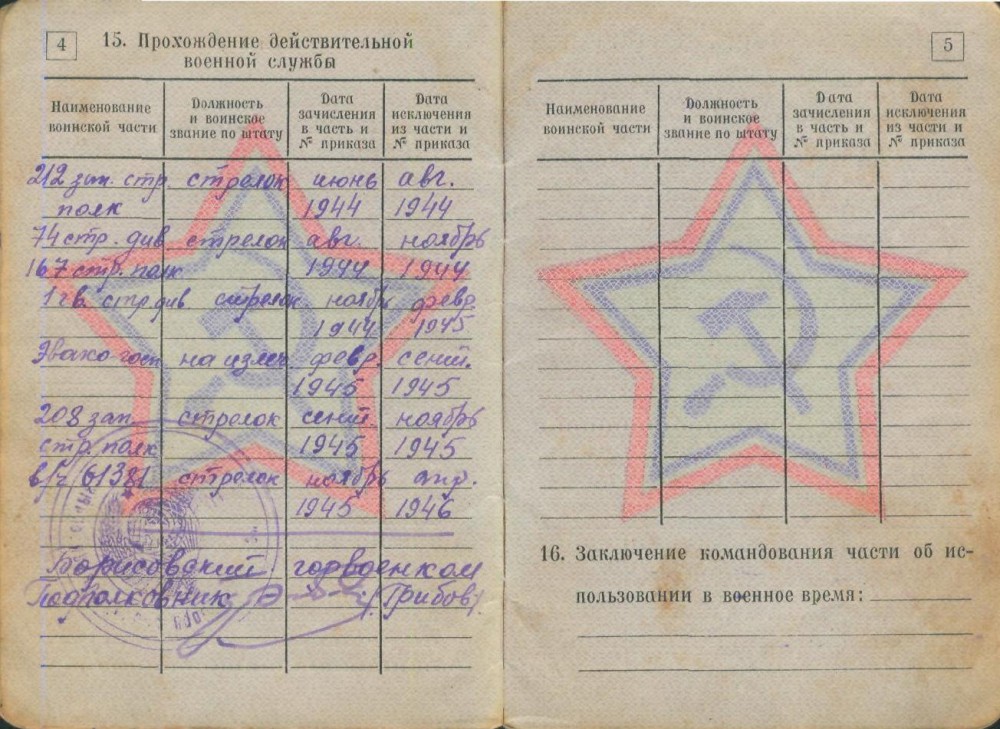 4
15. Прохождение действительной
военной службы
Наименование воинской части | Должность и воинское звание по штату | Дата зачисления в часть и № приказа | Дата исключения из части и № приказа
212 зап. стр. стрелок июнь авг.
полк 1944 1944
74 стр. див стрелок авг. ноябрь
167 стр. полк 1944 1944
1 гв. стр. див стрелок ноябрь февр.
1944 1945
Эвако госп на излеч февр. сент.
1945 1945
208 зап. стрелок сент. ноябрь
стр. полк 1945 1945
в/ч 61381 стрелок ноябрь апр.
1945 1946
Борисовский горвоенком
Подполковник (Грибов)
5
Наименование воинской части | Должность и воинское звание по штату | Дата зачисления в часть и № приказа | Дата исключения из части и № приказа
16. Заключение командования части об ис-
пользовании в военное время: